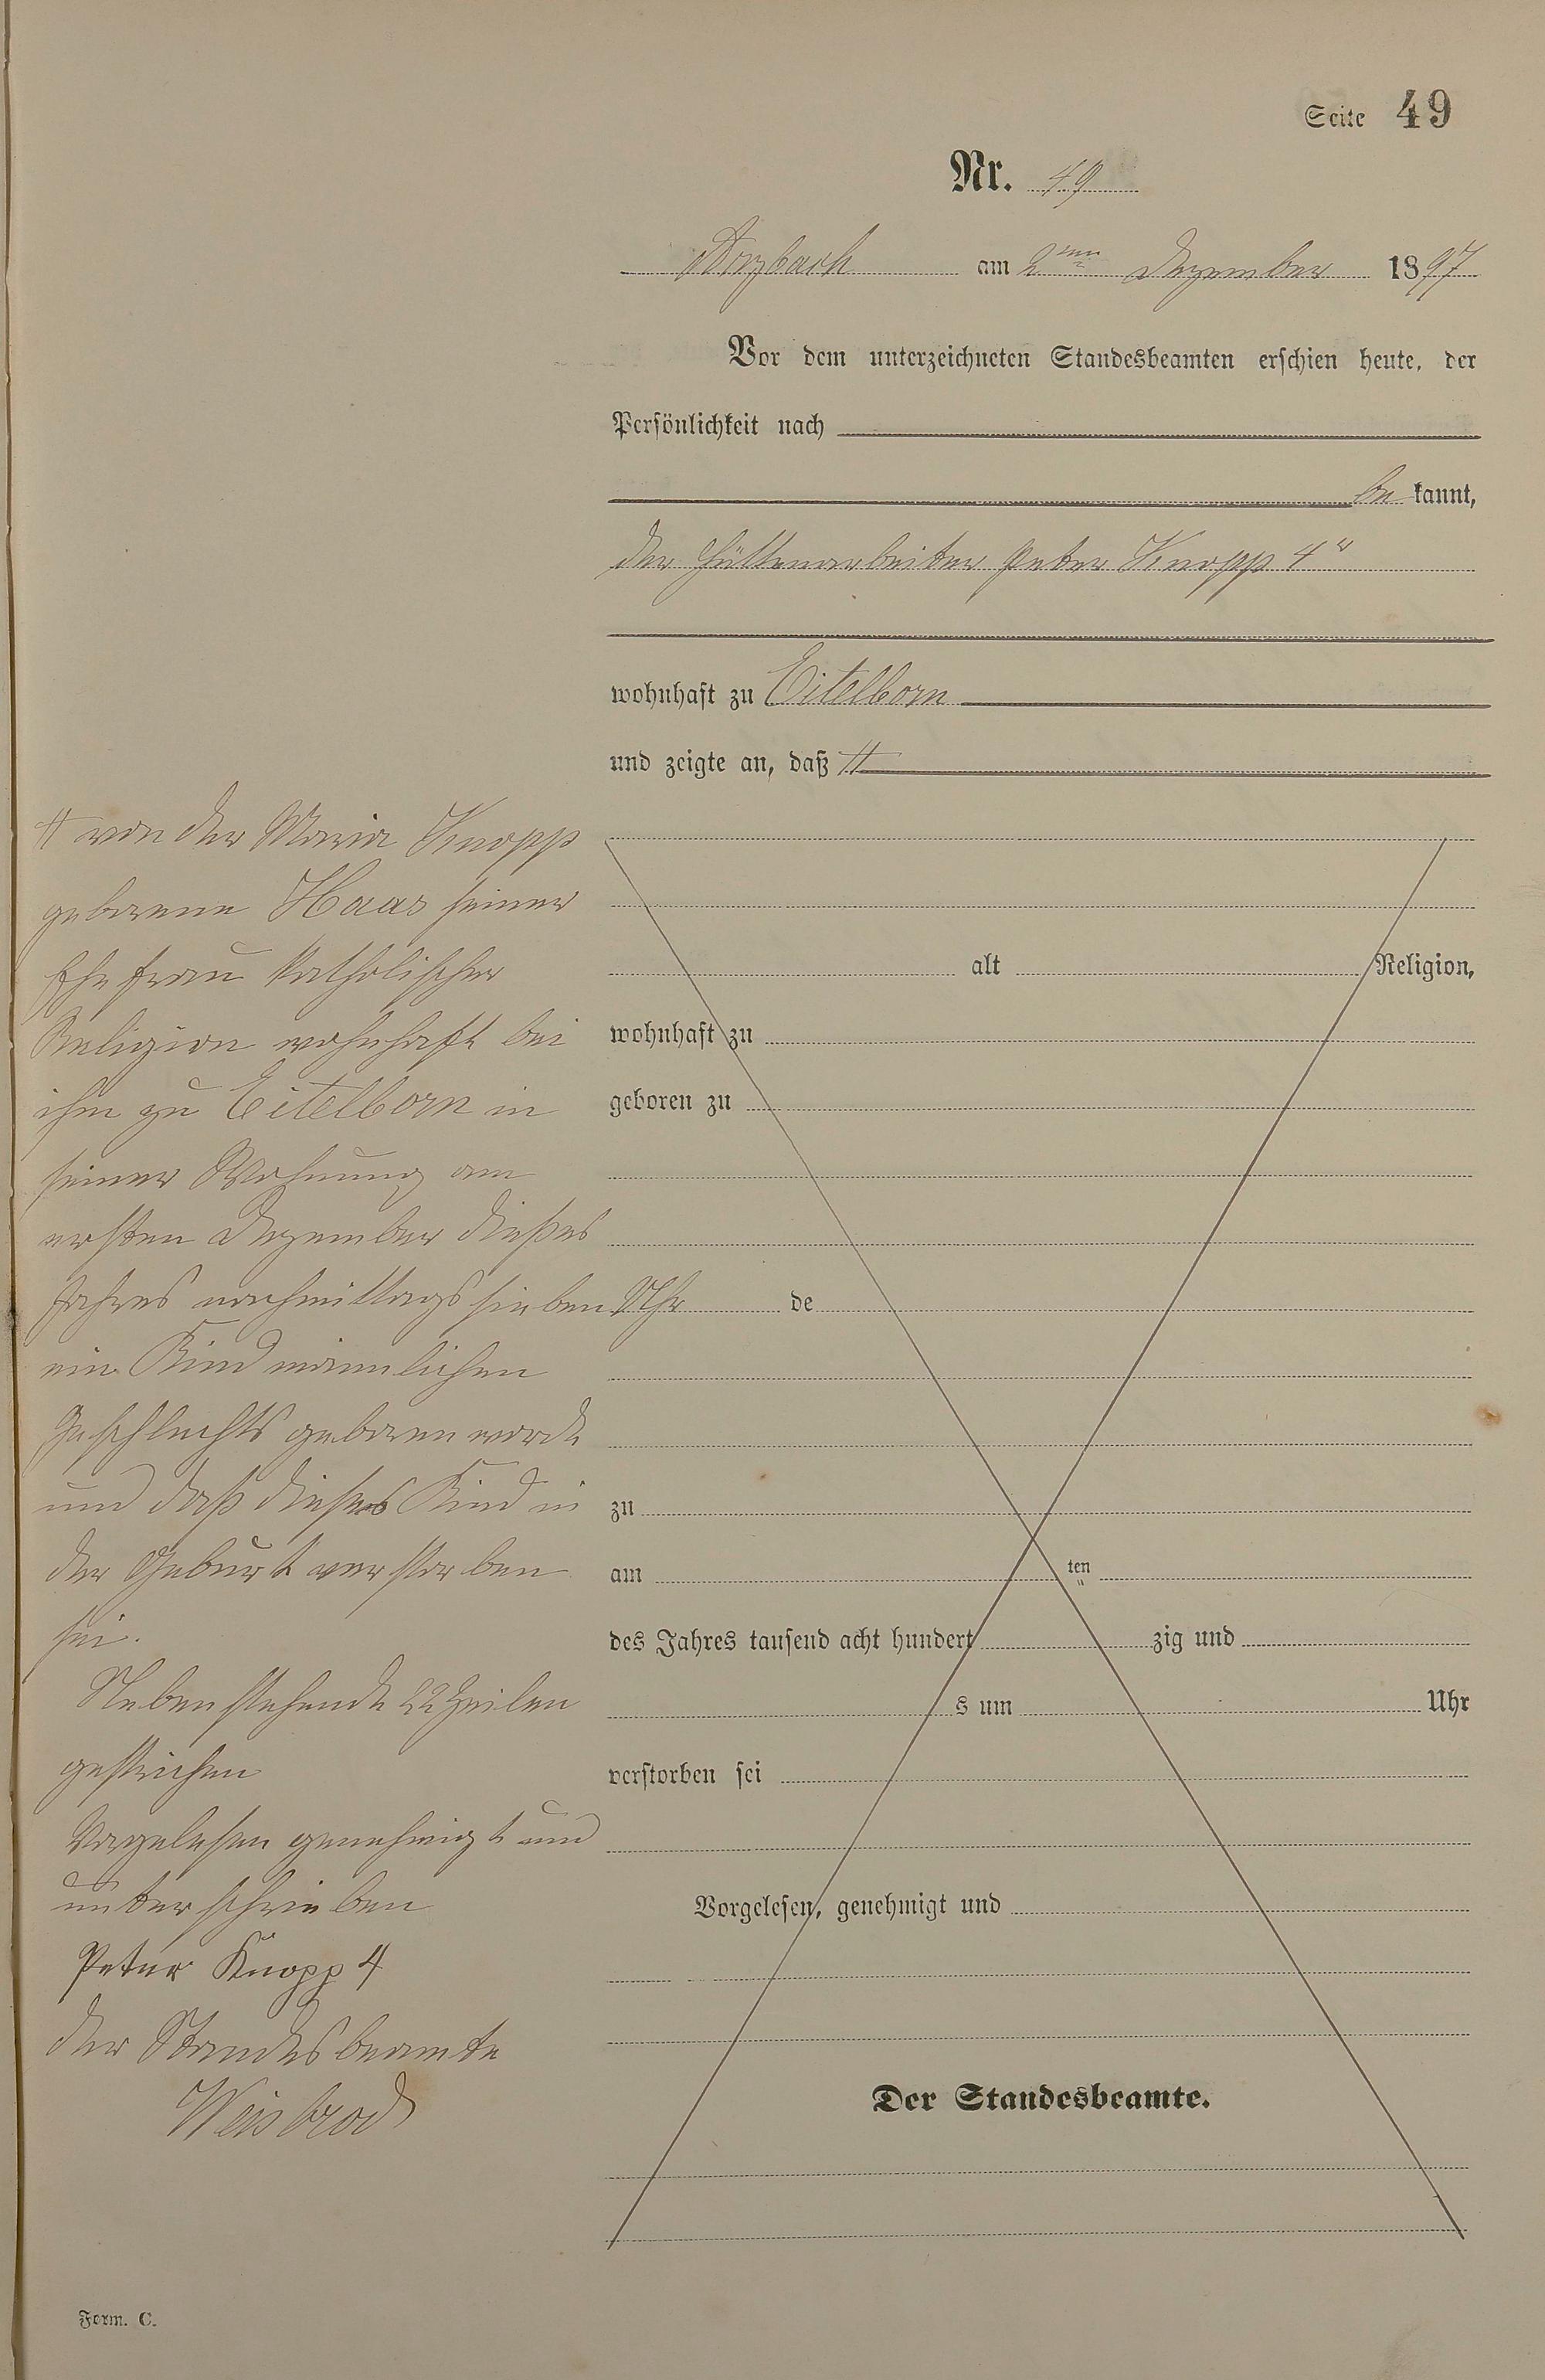 Seite 49
Nr. 49
Arzbach am 2ten Dezember 1897
Vor dem unterzeichneten Standesbeamten erschien heute, der
Persönlichkeit nach
be kannt,
der Hüttenarbeiter Peter Knopp 4r
wohnhaft zu Eitelborn
und zeigte an, daß #
# von der Maria Knopp
geborene Haas seiner
Ehefrau katholischer
Religion wohnhaft bei
ihm zu Eitelborn in
seiner Wohnung am
ersten Dezember dießes
Jahres nachmittags sieben Uhr
ein Kind männlichen
Geschlechts geboren worde
und daß dieses Kind in
der Geburt verstorben
sei.
Nebenstehende 22 Zeilen
gestrichen
Vorgelesen genehmigt und
unterschrieben
Peter Knopp 4
der Standesbeamte
Weisbrod
alt Religion,
wohnhaft zu
geboren zu
de
zu
am ten
des Jahres tausend acht hundert zig und
s um Uhr
verstorben sei
Vorgelesen, genehmigt und
Der Standesbeamte.
Form. C.